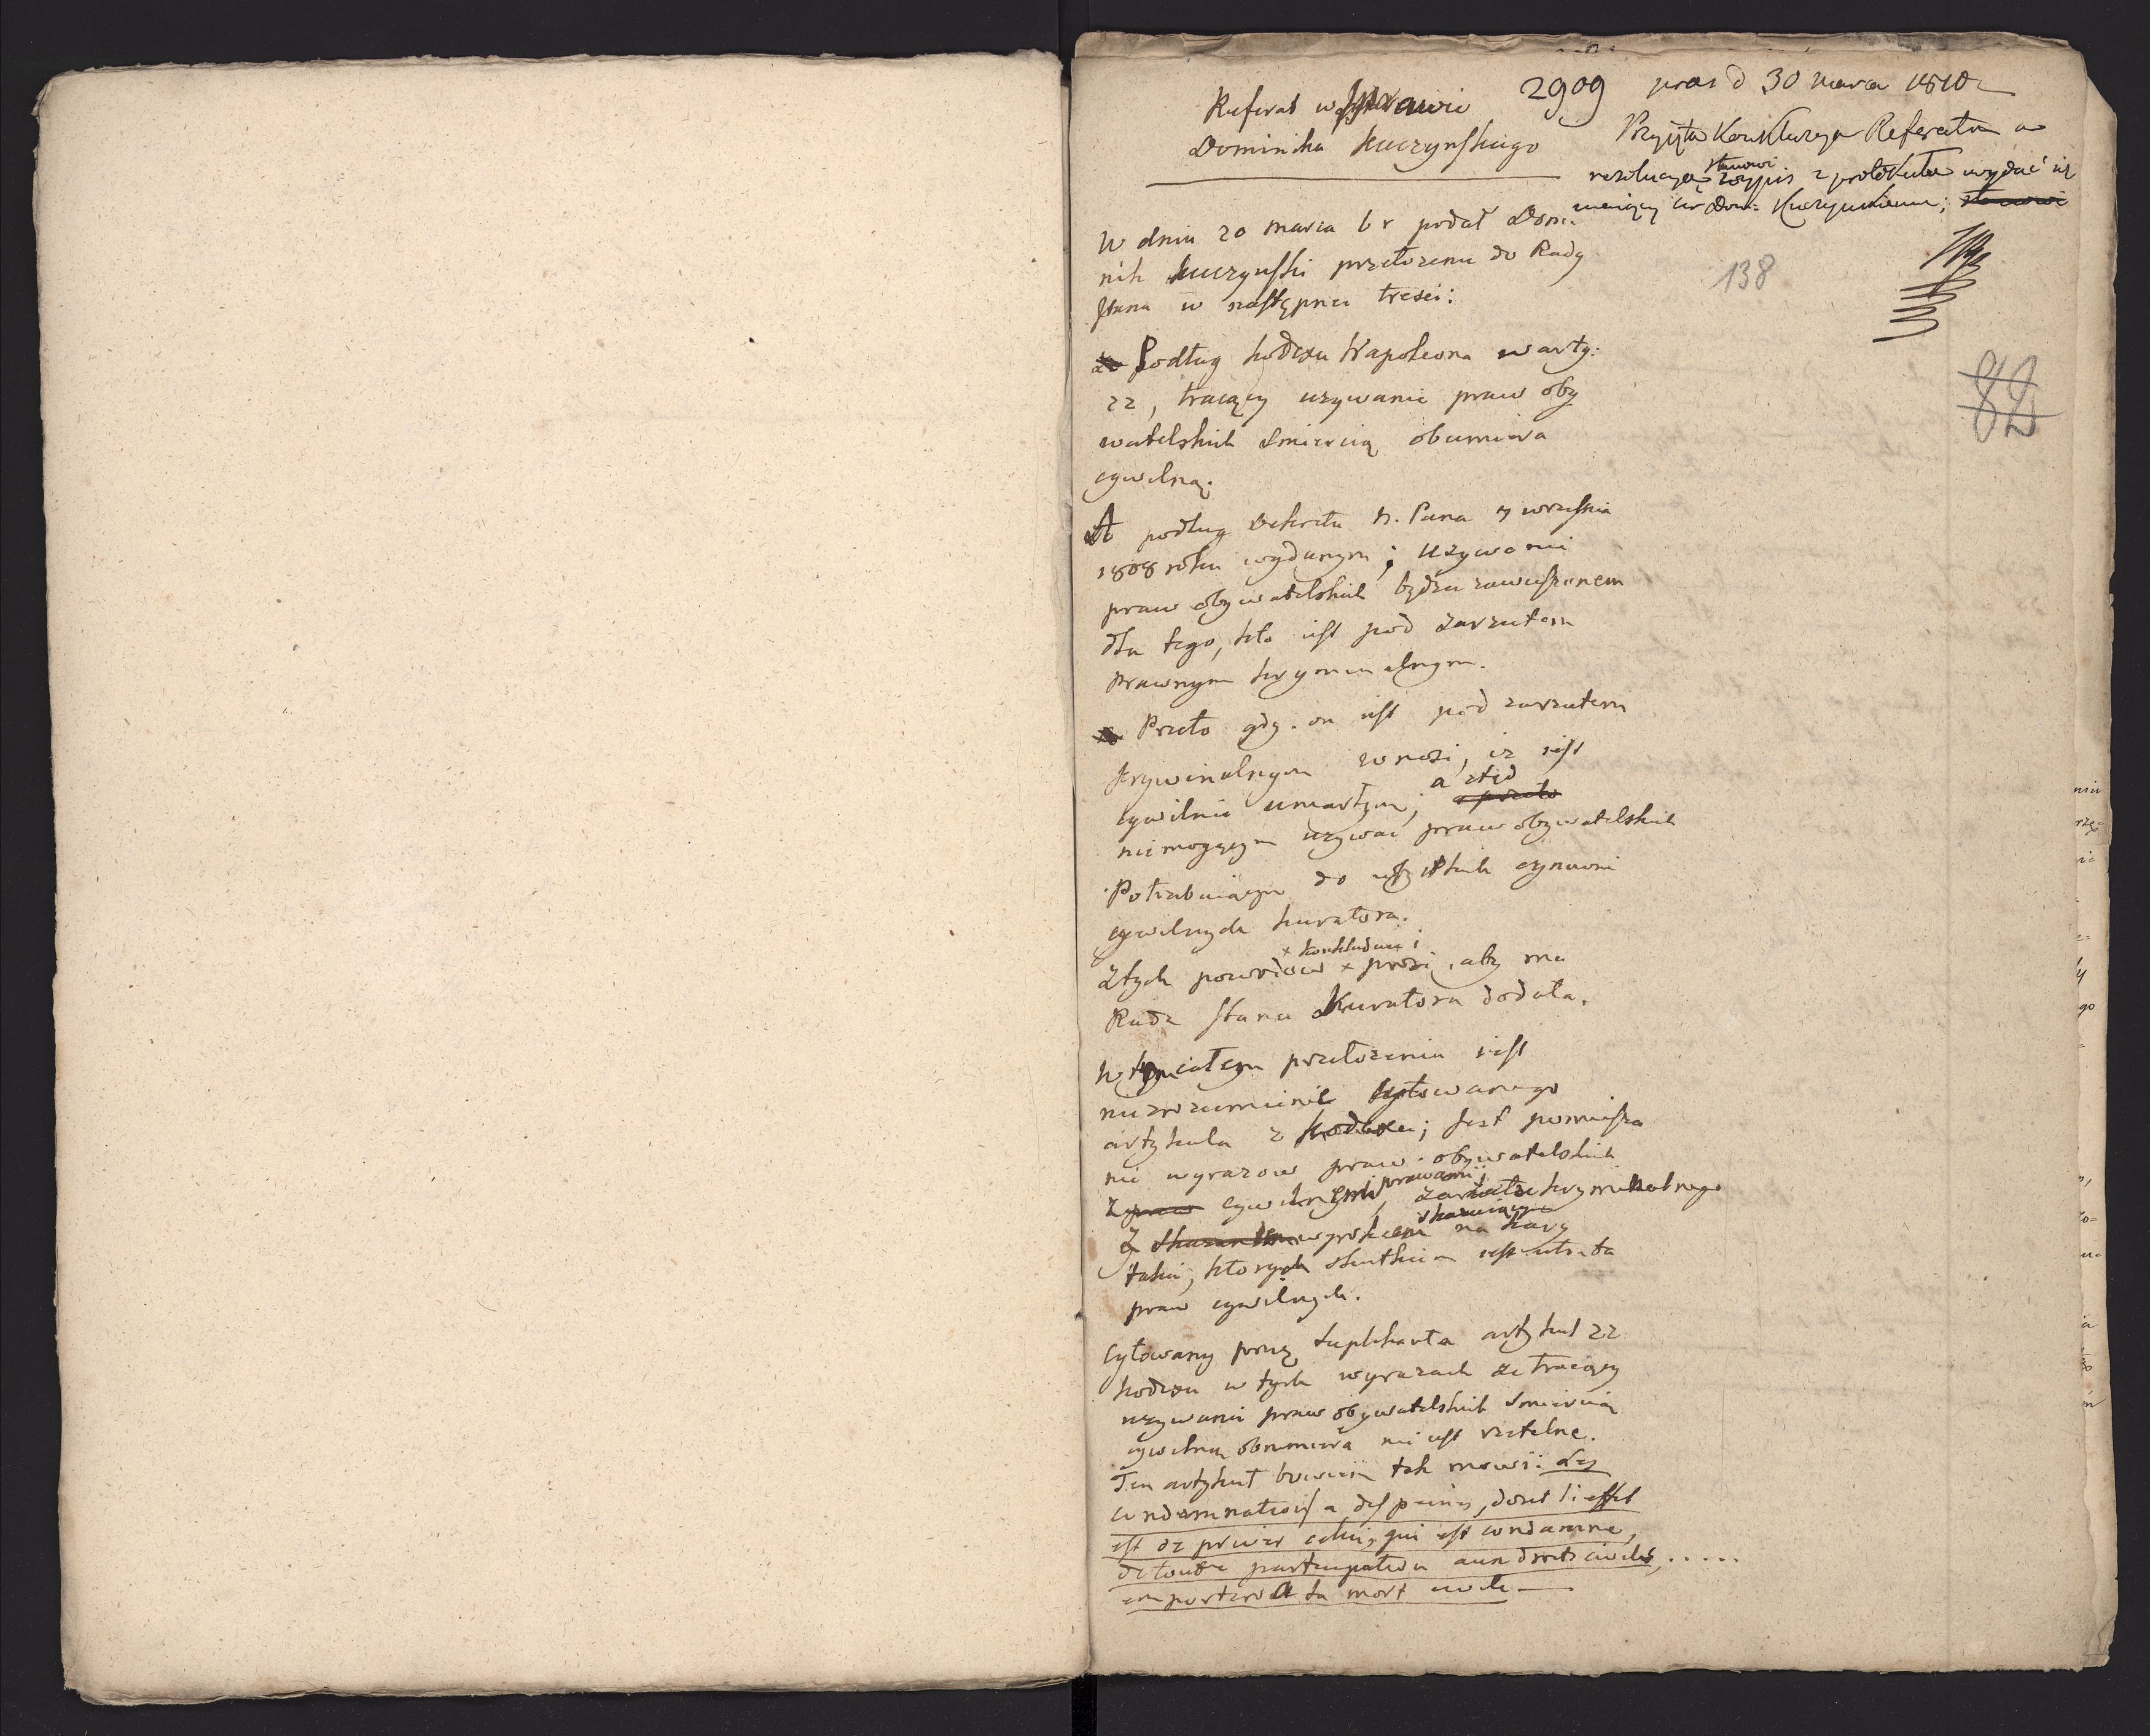 Referat w sprawie
Dominika Kuczyńskiego
2909
pras d 30 marca 1810
Przyjęta Konkluzya Referatu a
stanowi
rezolucyą wypis z protokułu wydać się
maiący Ur Dom: Kuczynskiemu; stanowi
138
82
W dniu 20 marca b r podał Domi
nik Kuczynski przełożenie do Rady
Stanu w następney tresci:
Podług kodexu Napoleona w arty:
22, tracący uzywanie praw oby
watelskich smiercią obumiera
cywilną.
A podług Dekretu N. Pana 7 wrzesnia
1808 roku wydanym; uzywanie
praw obywatelskich będzie zawieszonem
dla tego, kto iest pod zarzutem
prawnym kryminalnym.
Przeto gdy on iest pod zarzutem
kryminalnym wnosi, iz iest
cywilnie umarłym, a ztąd
a przeto
niemogącym uzywać praw obywatelskich
Potrzebuiącym do wszystkich czynnosci
cywilnych kuratora.
x konkluduie i
Z tych powodow x prosi, aby mu
Rada Stanu Kuratora dodała.
W tym całym przełozeniu iest
niezrozumienie cytowanego
artykułu z kodexu; Jest pomiesza
nie wyrazow praw obywatelskich
z praw cywilnemi prawami, zarzutu kryminalnego
skazuiącym
z skazaniem wyrokiem na kary
takie, ktorych skutkiem iest utrata
praw cywilnych.
Cytowany przez suplikanta artykuł 22
kodexu w tych wyrazach ze tracący
uzywanie praw obywatelskich smiercią
cywilną obumiera nie iest rzetelne.
Ten artykuł bowiem tak mowi: Les
condamnations a des peines, dont l'effet
est de priver celui, qui est condamné,
de toute participation aux droits civils, .....
emportera la mort civile —